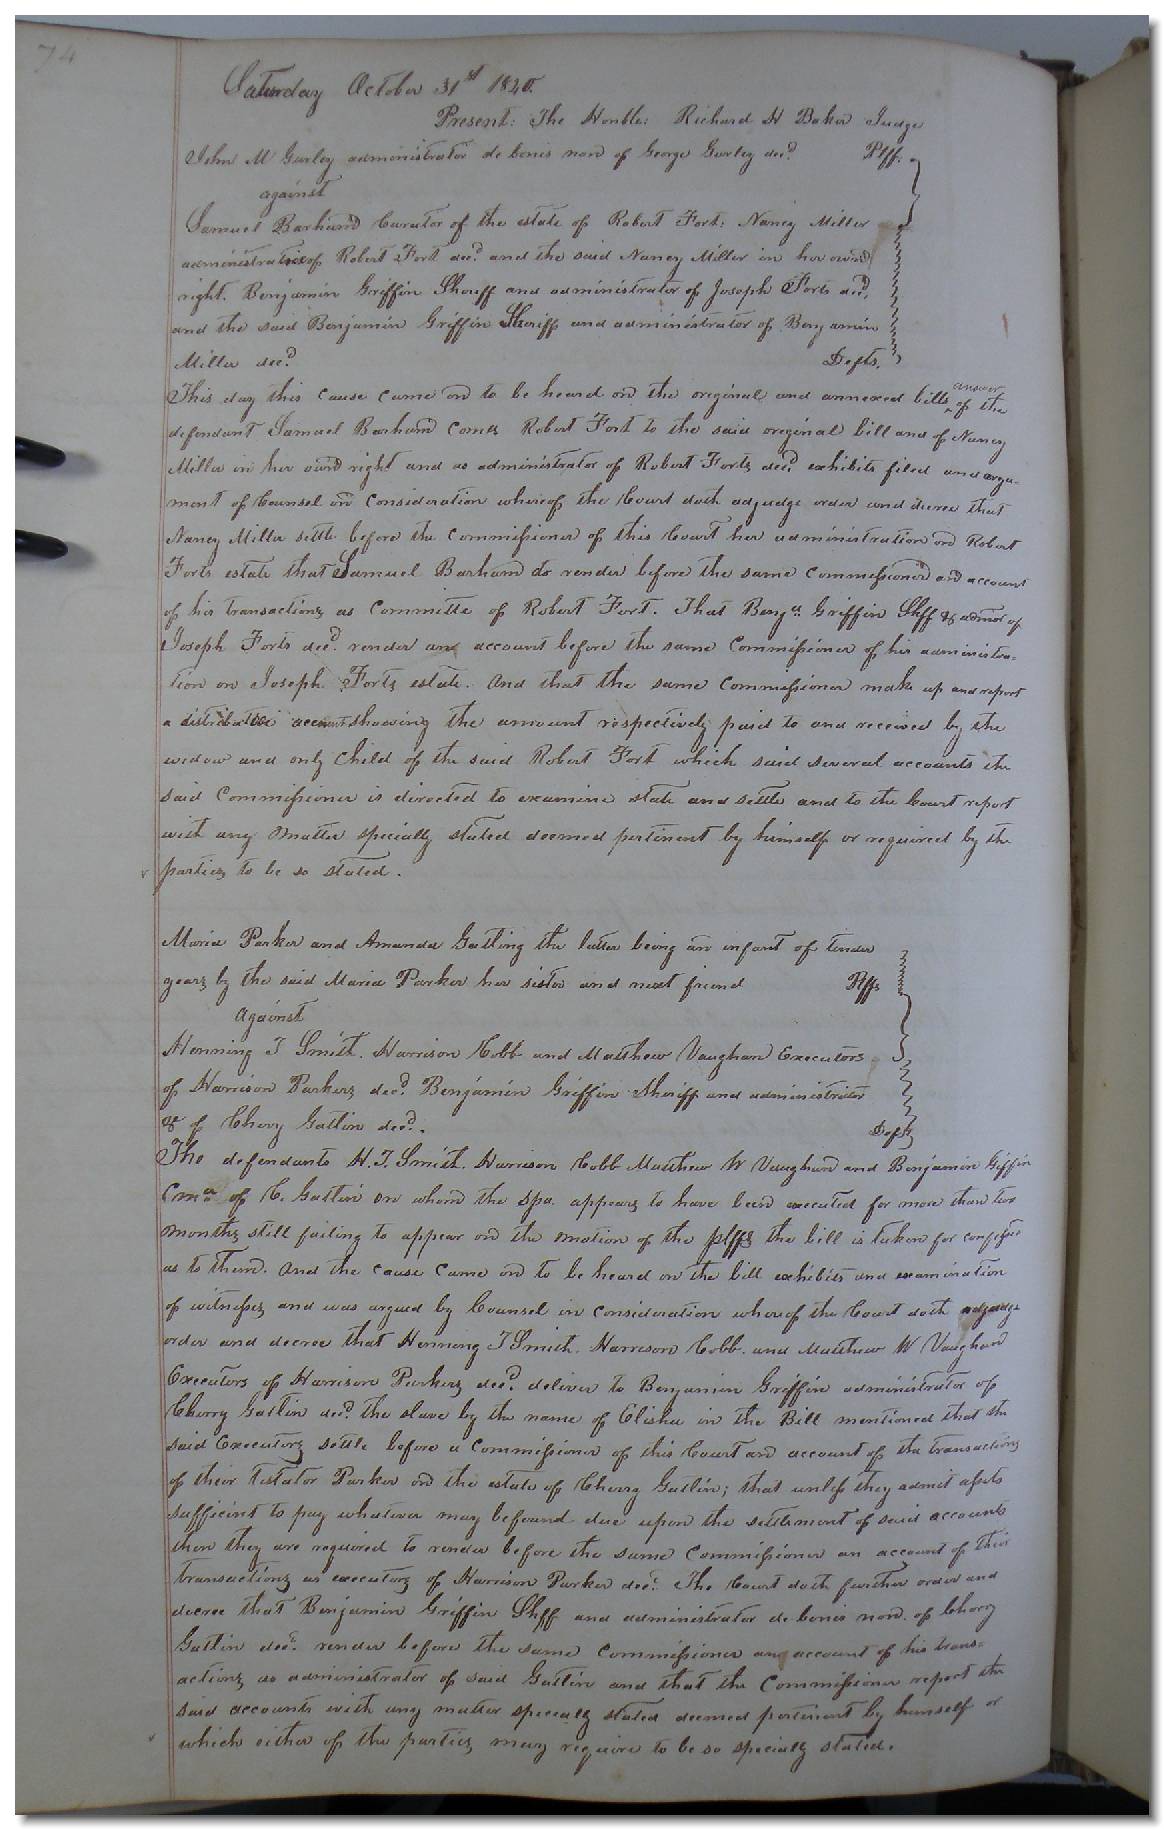 74
Saturday October 31st 1840.
Present: The Honble: Richard H Baker Judge
John M Gurley administrator de bonis non of George Gurley decd. Plff.
against
Samuel Barham Curator of the estate of Robert Fort: Nancy Miller
administratrix of Robert Fort decd. and the said Nancy Miller in her own
right. Benjamin Griffin Sheriff and administrator of Joseph Forts decd,
and the said Benjamin Griffin Sheriff and administrator of Benjamin
Miller decd. Defts.
This day this cause came on to be heard on the original and annexed bills answer of the
defendant Samuel Barham Comee Robert Fort to the said original bill and of Nancy
Miller in her own right and as administrator of Robert Forts decd. exhibits filed and argu-
ment of Counsel on Consideration whereof the Court doth adjudge order and decree that
Nancy Miller settle before the Commissioner of this Court her administration on Robert
Forts estate that Samuel Barham do render before the same Commissioner an account
of his transactions as Committe of Robert Fort. That Benja. Griffin Shff & admor of
Joseph Forts decd. render any account before the same Commissioner of his administra-
tion on Joseph Forts estate. And that the same Commissioner make up and report
a distributive account showing the amount respectively paid to and received by the
widow and only Child of the said Robert Fort which said several accounts the
said Commissioner is directed to examine state and settle and to the Court report
with any Matter specially stated deemed pertinent by himself or required by the
parties to be so stated.
Maria Parker and Amanda Gatling the latter being an infant of tender
years by the said Maria Parker her sister and next friend Plffs
against
Henning T Smith. Harrison Cobb and Matthew Vaughan Executors
of Harrison Parkers decd. Benjamin Griffin Sheriff and administrator
& of Cherry Gatlin decd. Defts
The defendants H. T. Smith. Harrison Cobb Matthew W Vaughan and Benjamin Griffin
of C. Gatlin on whom the spa. appears to have been executed for more than two
Months still failing to appear on the motion of the plffs the bill is taken for confessed
as to them. And the cause came on to be heard on the bill exhibits and examination
of witnesses and was argued by Counsel in consideration whereof the Court doth adjudge
order and decree that Henning T Smith. Harrison Cobb. and Matthew W Vaughan
Executors of Harrison Parkers decd. deliver to Benjamin Griffin administrator of
Cherry Gatlin decd. the slave by the name of Elisha in the Bill mentioned that the
said Executors settle before a Commissioner of this Court an account of the transactions
of their testator Parker on the estate of Cherry Gatlin; that unless they admit assets
sufficient to pay whatever may be found due upon the settlement of said accounts
then they are required to render before the same Commissioner an account of their
transactions as executors of Harrison Parker decd. The Court doth further order and
decree that Benjamin Griffin Shff and administrator de bonis non. of Cherry
Gatlin decd. render before the same Commissioner any account of his trans-
actions as administrator of said Gatlin and that the Commissioner report the
said accounts with any matter specially stated deemed pertinent by himself or
which either of the parties may require to be so specially stated.